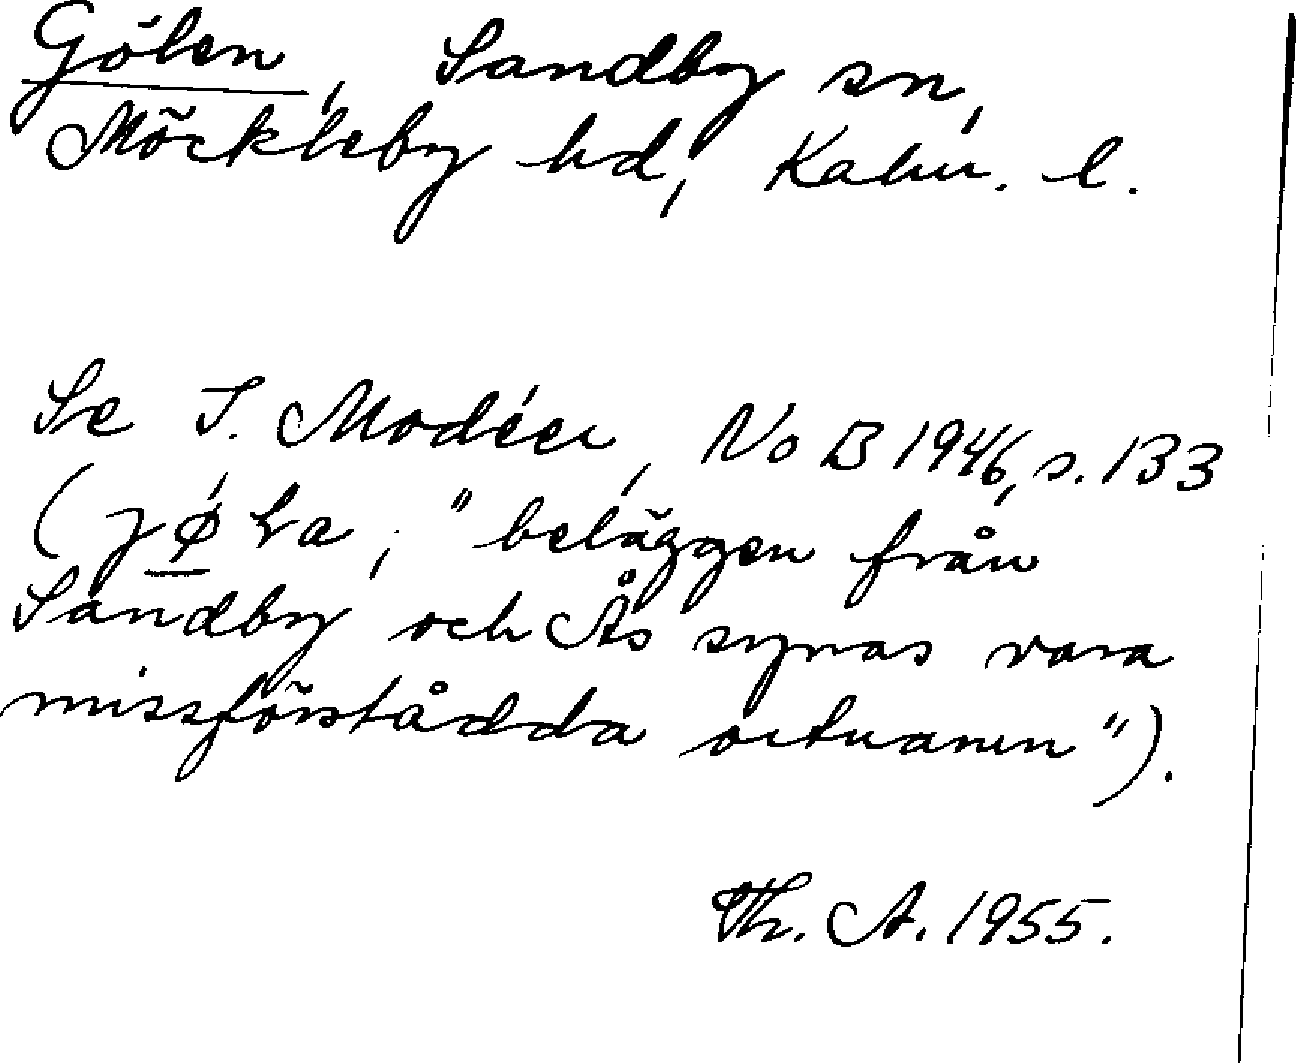 Gölen, Sandby sn,
Möckleby hd, Kalm. l.
Se I. Modéer, NoB 1946, s. 133
(jǿ̱la; "beläggen från
Sandby och Ås synas vara
missförstådda ortnamn").
Th. A. 1955.